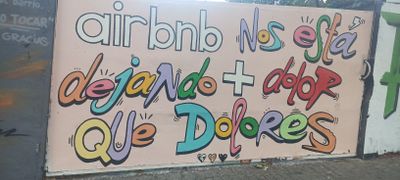 barrio.
NO TOCAR"
GRACIAS
airbnb Nos está
dejando + dolor
Que Dolores